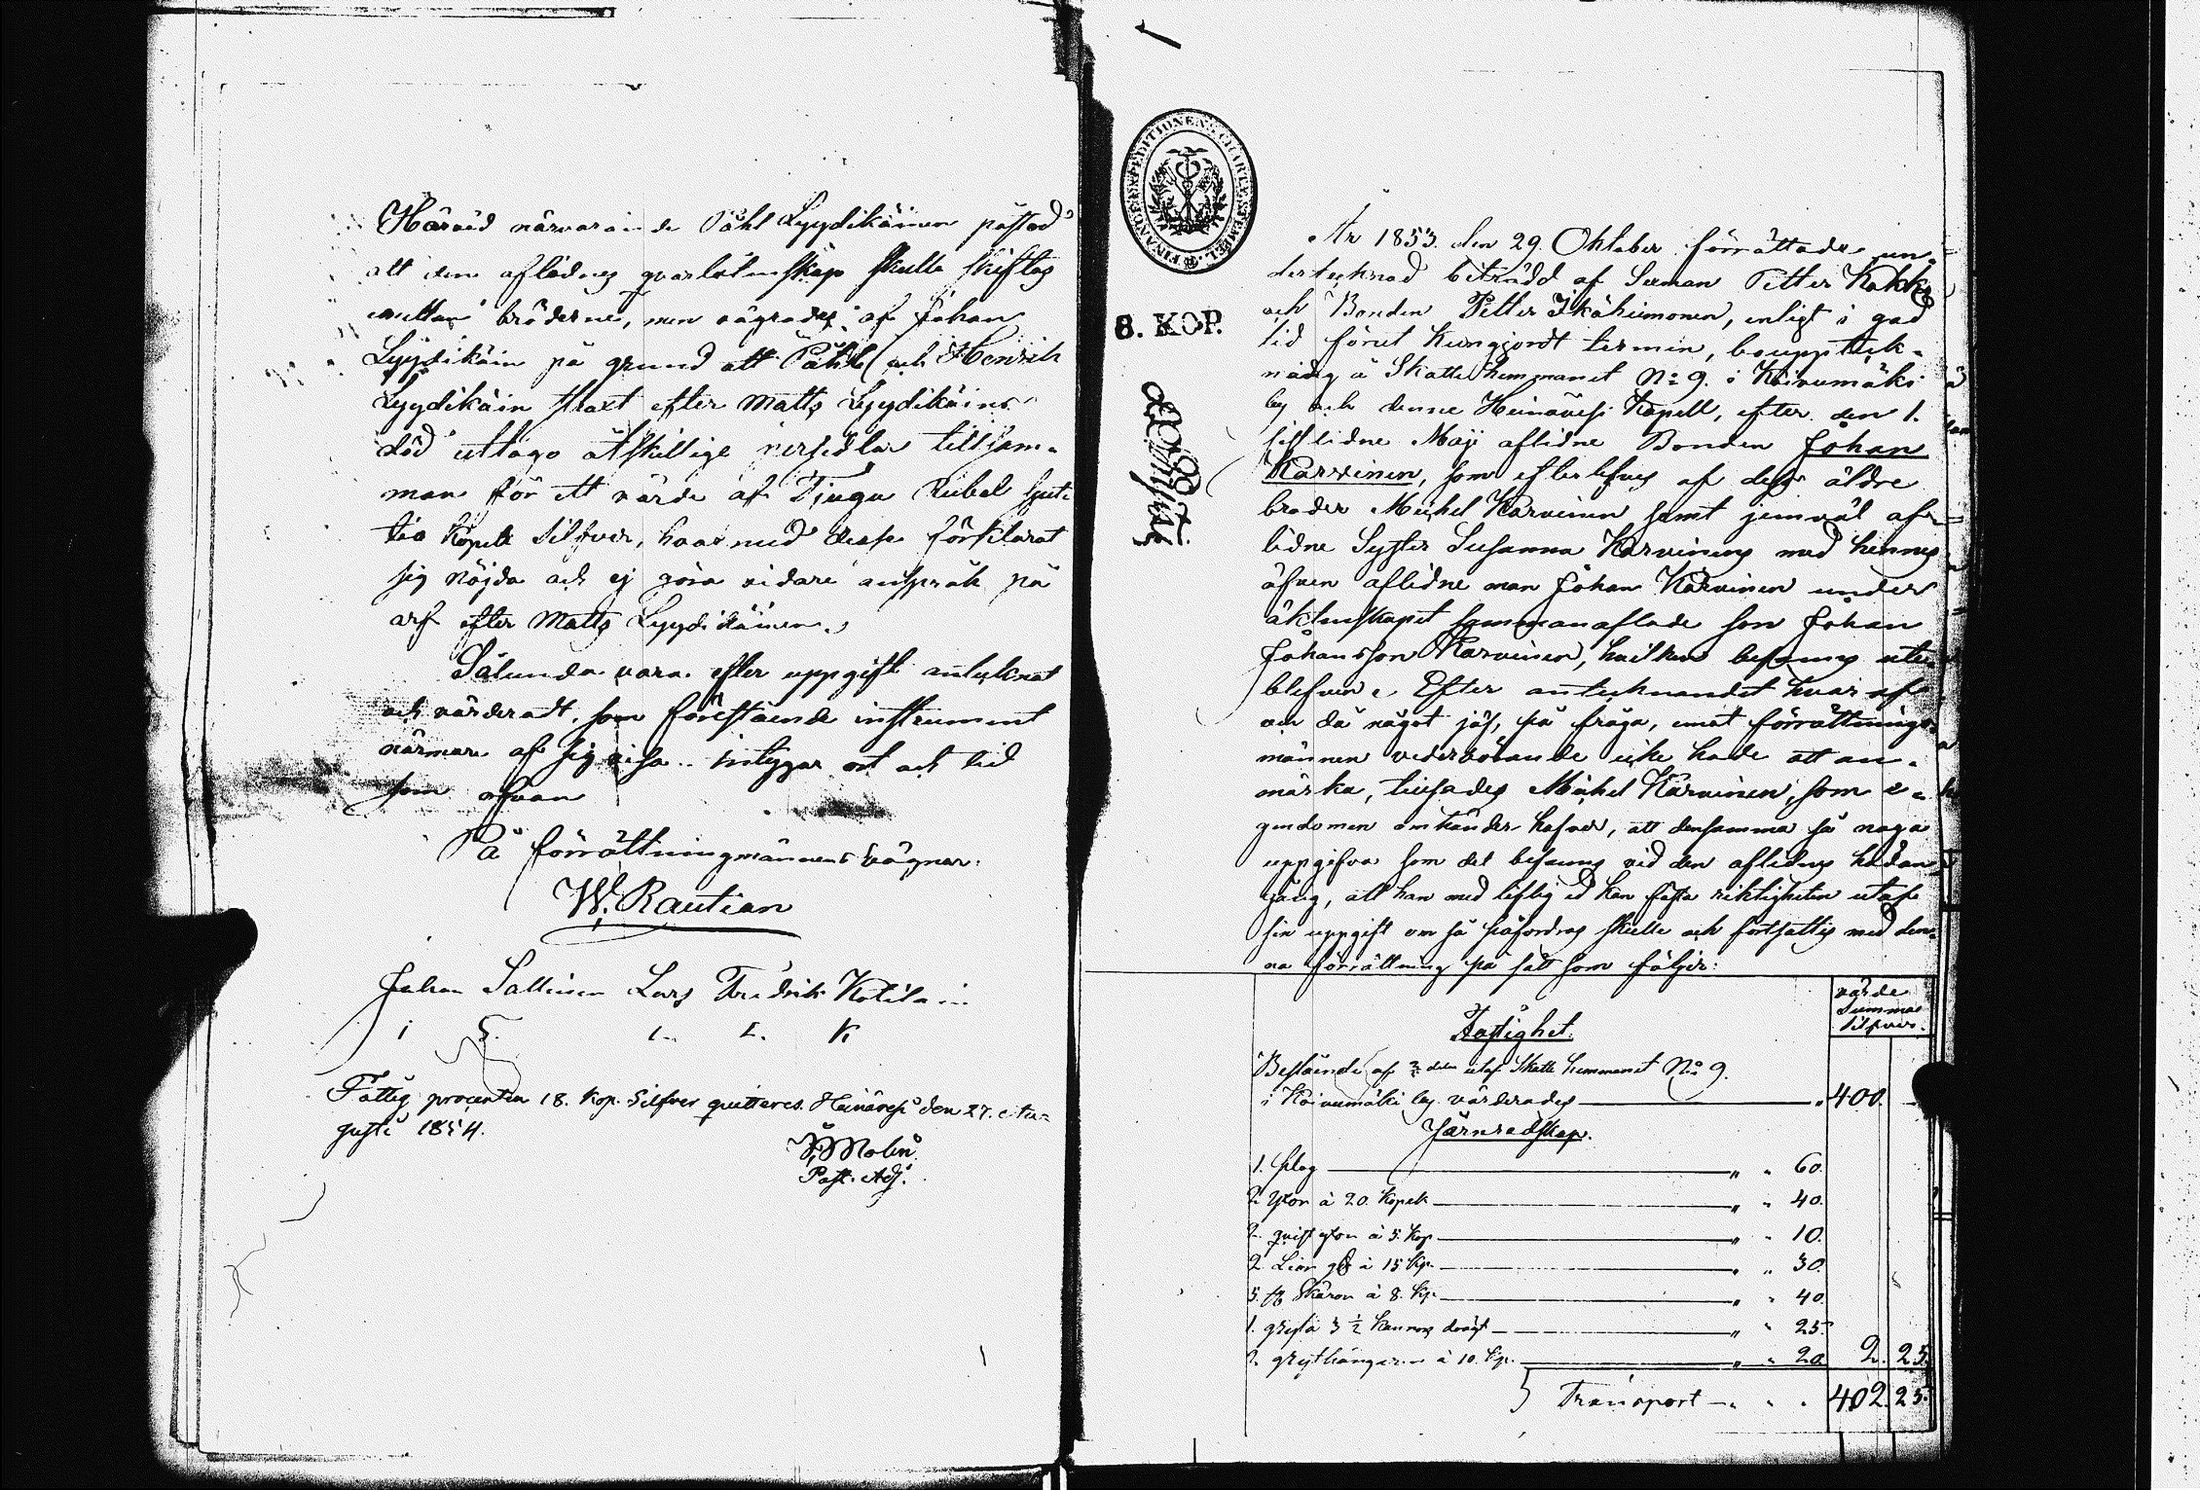 Härvid närvarande Påhl Lyydikäinen påstod
att den aflidnes qvarlåtenskap skulle skiftas
mellan bröderne, men vägrades af Johan
Lyydikäin på grund att Påhl och Henrik
Lyydikäin straxt efter Matts Lyydikäins
död uttago åtskillige persedlar tillsam-
man för ett värde af Tjugu Rubel
tio Kopek Silfver, hvarmed desse förklarat
sig nöjda och ej göra vidare anspråk på
arf efter Matts Lyydikäinen.
Sålunda vara efter uppgift antecknat
och värderadt, som förestående instrument
närmare af sig visa intygar ort och tid
som ofvan
På förrättningmännens vägnar:
W. Rautian
Johan Sallinen Lars Fredrik Kotilain
I S. L. F. K
Fattig procenten 18. Kop. Silfver quitteras. Heinävesi den 27. Au-
gusti 1854.
Molin
Past. Adj.
FINANCE EXPEDITIONENS CHARTÆ STEMPEL.
8. KOP.
År 1853. den 29. Oktober förrättade un-
dertecknad biträdd af Seman Petter Kakko
och Bonden Petter Ikäheimonen, enligt i god
tid förut kungjordt termin, boupptek-
nådg å Skattehemmanet No 9. i Koivumäki
by och denne Heinävesi Kapell, efter den 1.
sistlidne Maji aflidne Bonden Johan
Karvinen, som efterlefves af dess äldre
broder Michel Karvinen samt jemväl af-
lidne Syster Susanna Karvinens med hennes
äfven aflidne man Johan Karvinen under
äktenskapet sammanaflade son Johan
Johansson Karvinen, hvilken
blefven. Efter antecknandet hvaraf
och då något jäf, på fråga, emot förrättnings
männen vederbörande icke hade att an-
märka, tillsades Michel Karvinen, som e-
gendomen omhänder hafver, att densamma så noga
uppgifva som det befanns vid den aflidnes hädan
gång, att han med liflig ed kan fästa riktigheten utaf
sin uppgift om så påfordras skulle och fortsattes med den-
na förrättning på sätt som följer:
värde
Summa
Silfver.
Fastighet.
Bestående af delen utaf Skatte hemmanet No 9.
i Koivumäki by värderades 400.
Järnredskap.
1. plog " " 60.
2 Yxor à 20. Kopek " " 40.
2. qvist yxor à 5. Kop " " 10.
2 Liar à 15 Kp. " " 30.
5. Skäror à 8. Kp. " " 40.
1. gryta 3 1/2 Kannors " " 25.
2. grythängare à 10. Kp. " " 20 2. 25.
Transport " " 402. 25.